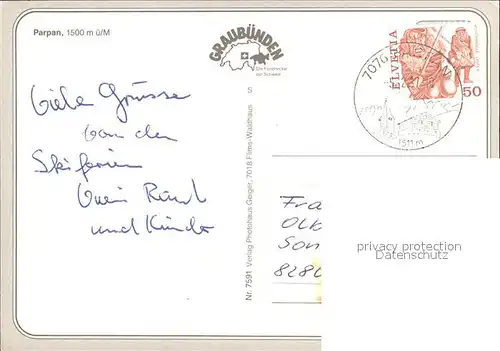 Parpan, 1500 m ü/M
GRAUBÜNDEN
Die Ferienecke
der Schweiz
S
HELVETIA
50
7076
1511 m
Viele Grüsse
von den
Skiferien
und Kinder
Nr. 7591 Verlag Photohaus Geiger, 7018 Flims-Waldhaus
Fra
Olk
Son
8280
privacy protection
Datenschutz